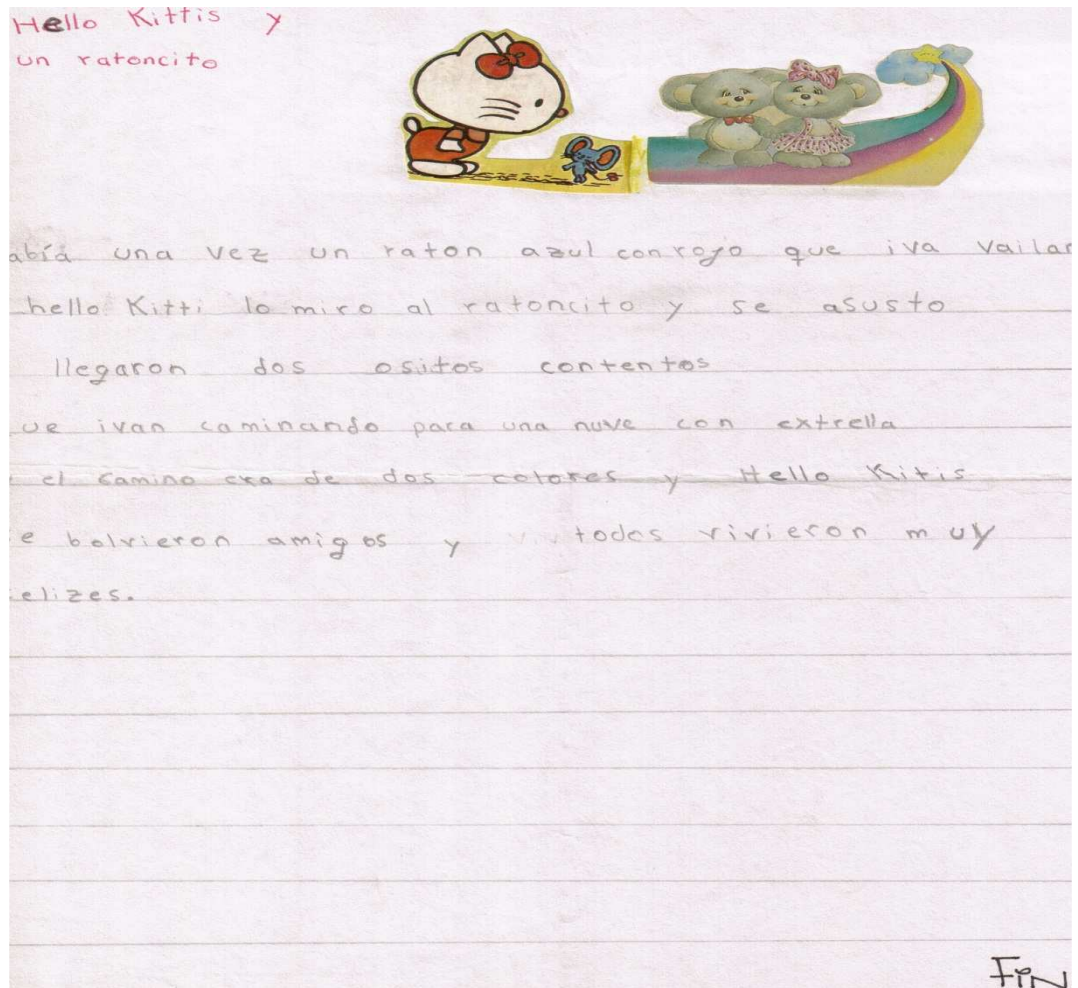 Hello Kittis y
un ratoncito
abía una vez un raton azul con rojo que iva vailar
hello Kitti lo miro al ratoncito y se asusto
llegaron dos ositos contentos
ue ivan caminando para una nuve con extrella
el camino era de dos colores y Hello Kitis
e bolvieron amigos y todos vivieron muy
elizes.
FiN